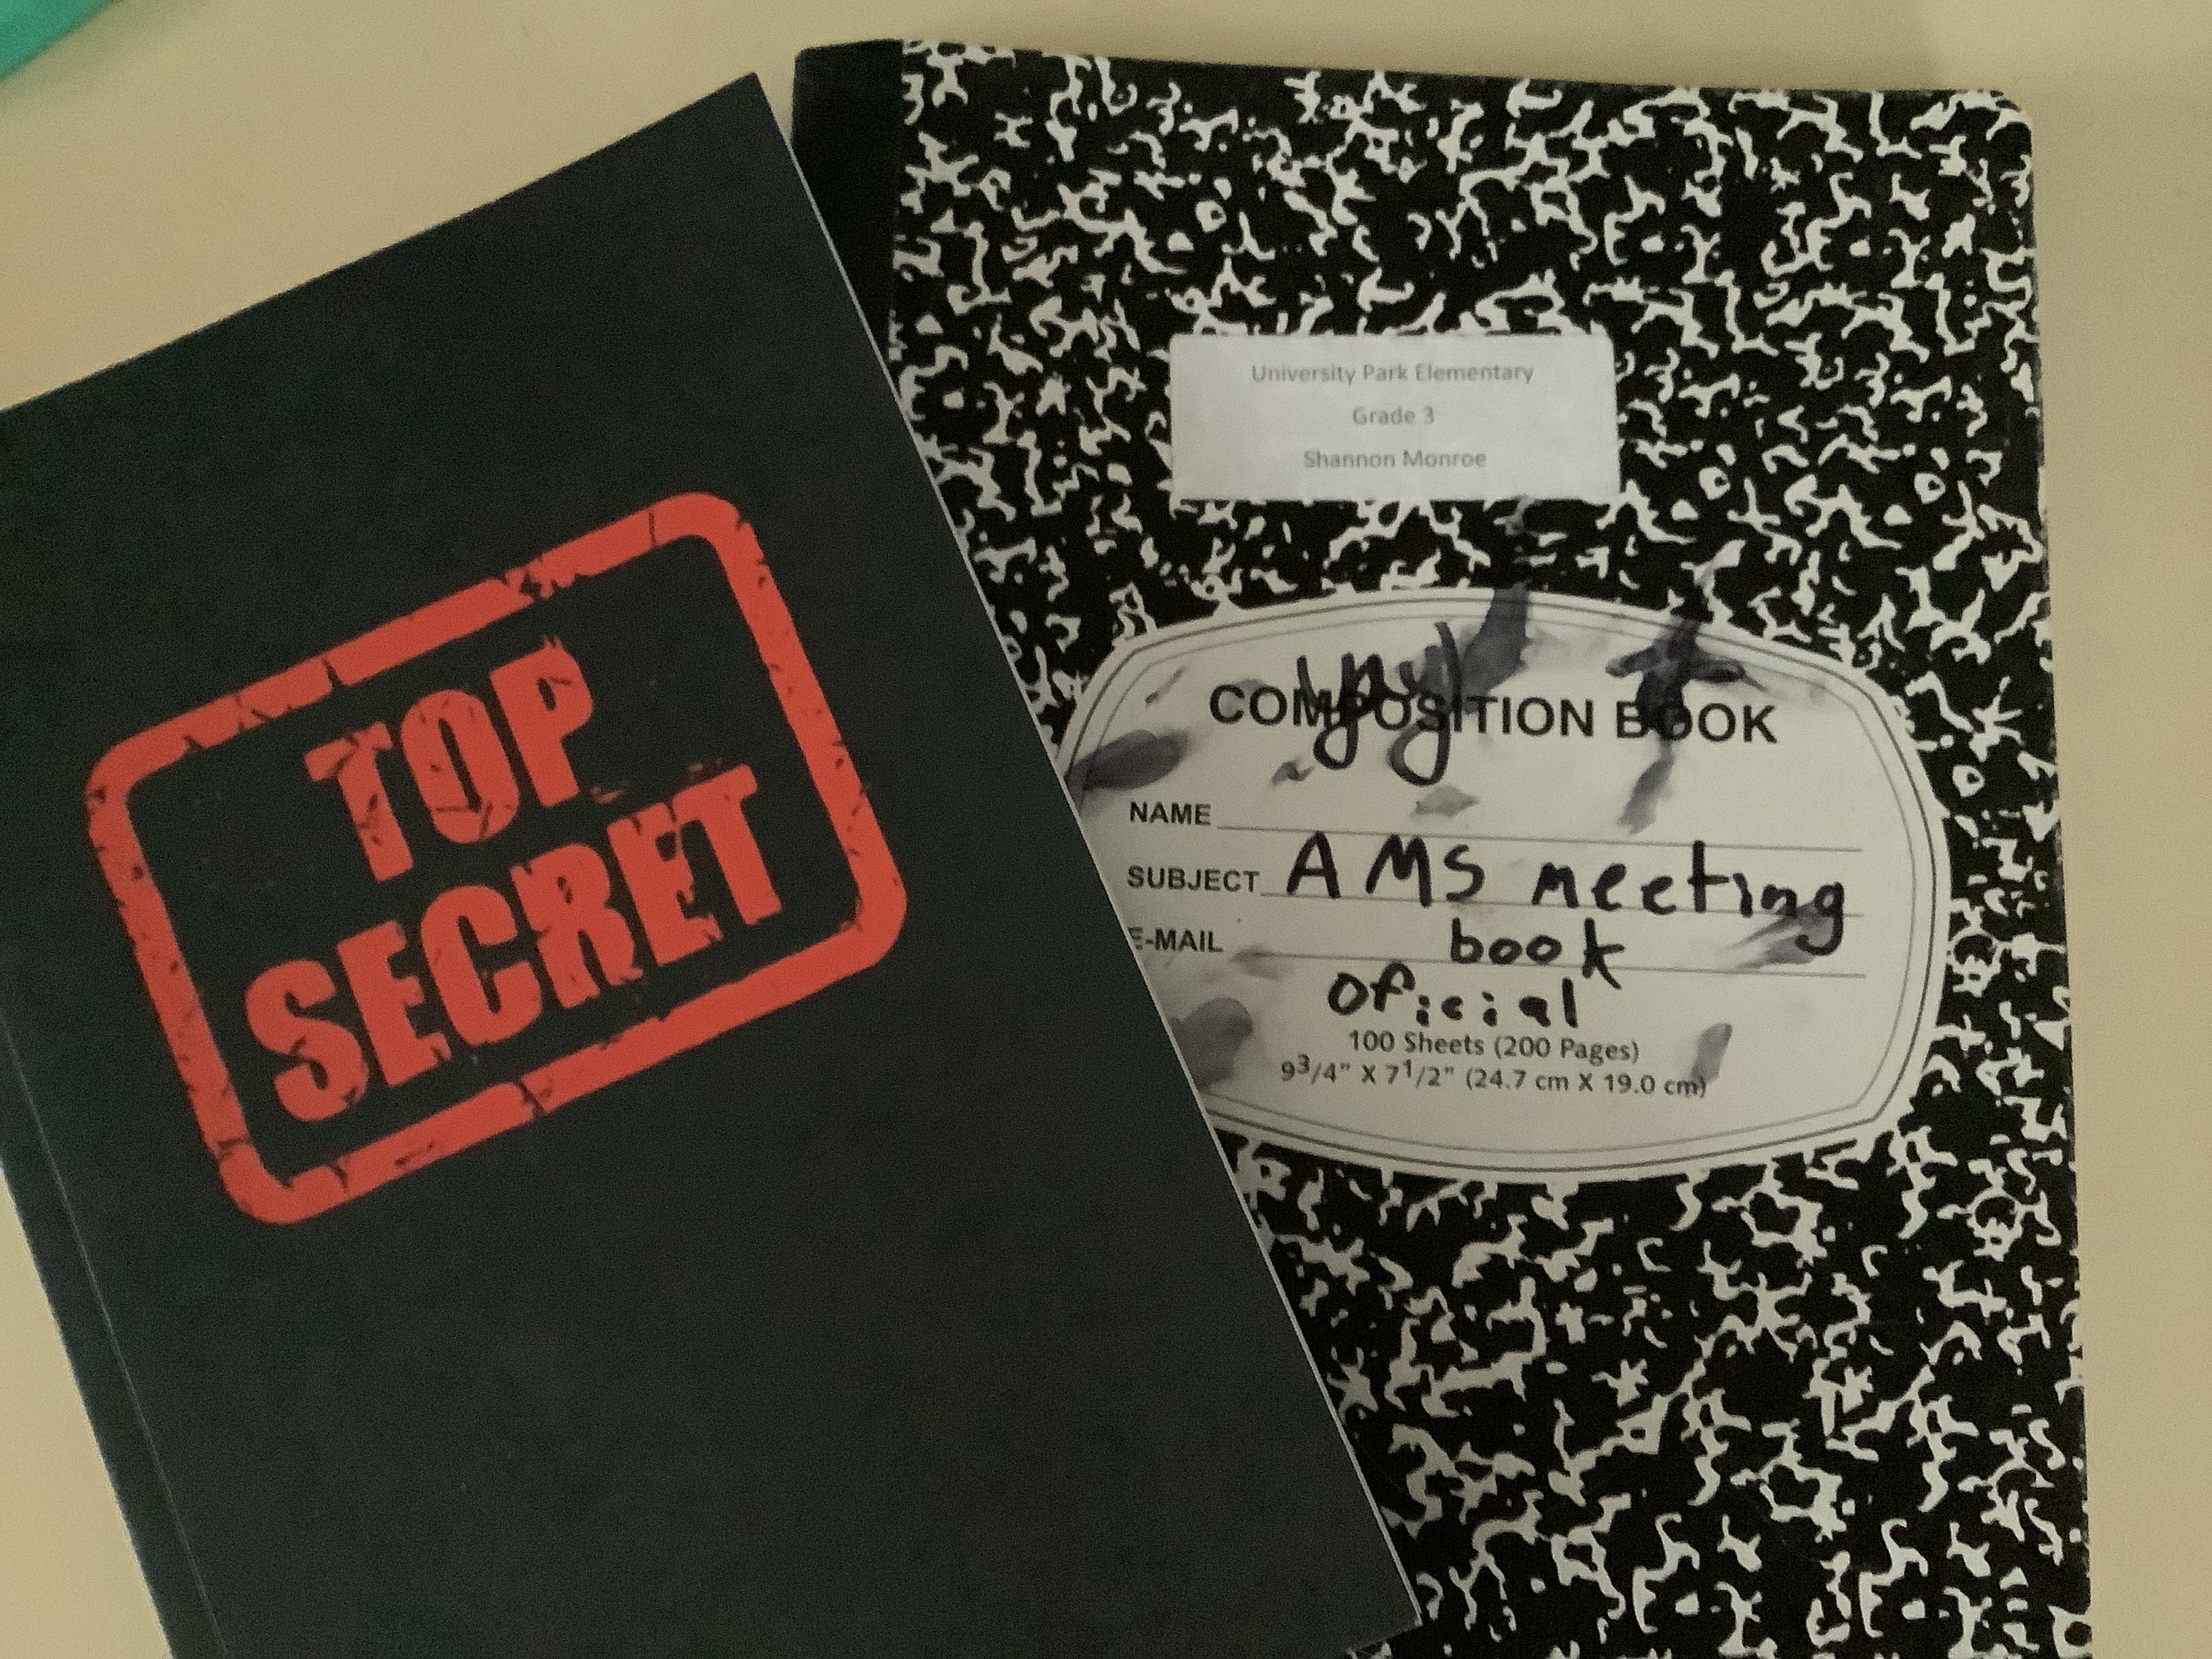 TOP
SECRET
University Park Elementary
Grade 3
Shannon Monroe
COMPOSITION BOOK
NAME
SUBJECT AMS meeting
E-MAIL book
Oficial
100 Sheets (200 Pages)
9 3/4" X 7 1/2" (24.7 cm X 19.0 cm)